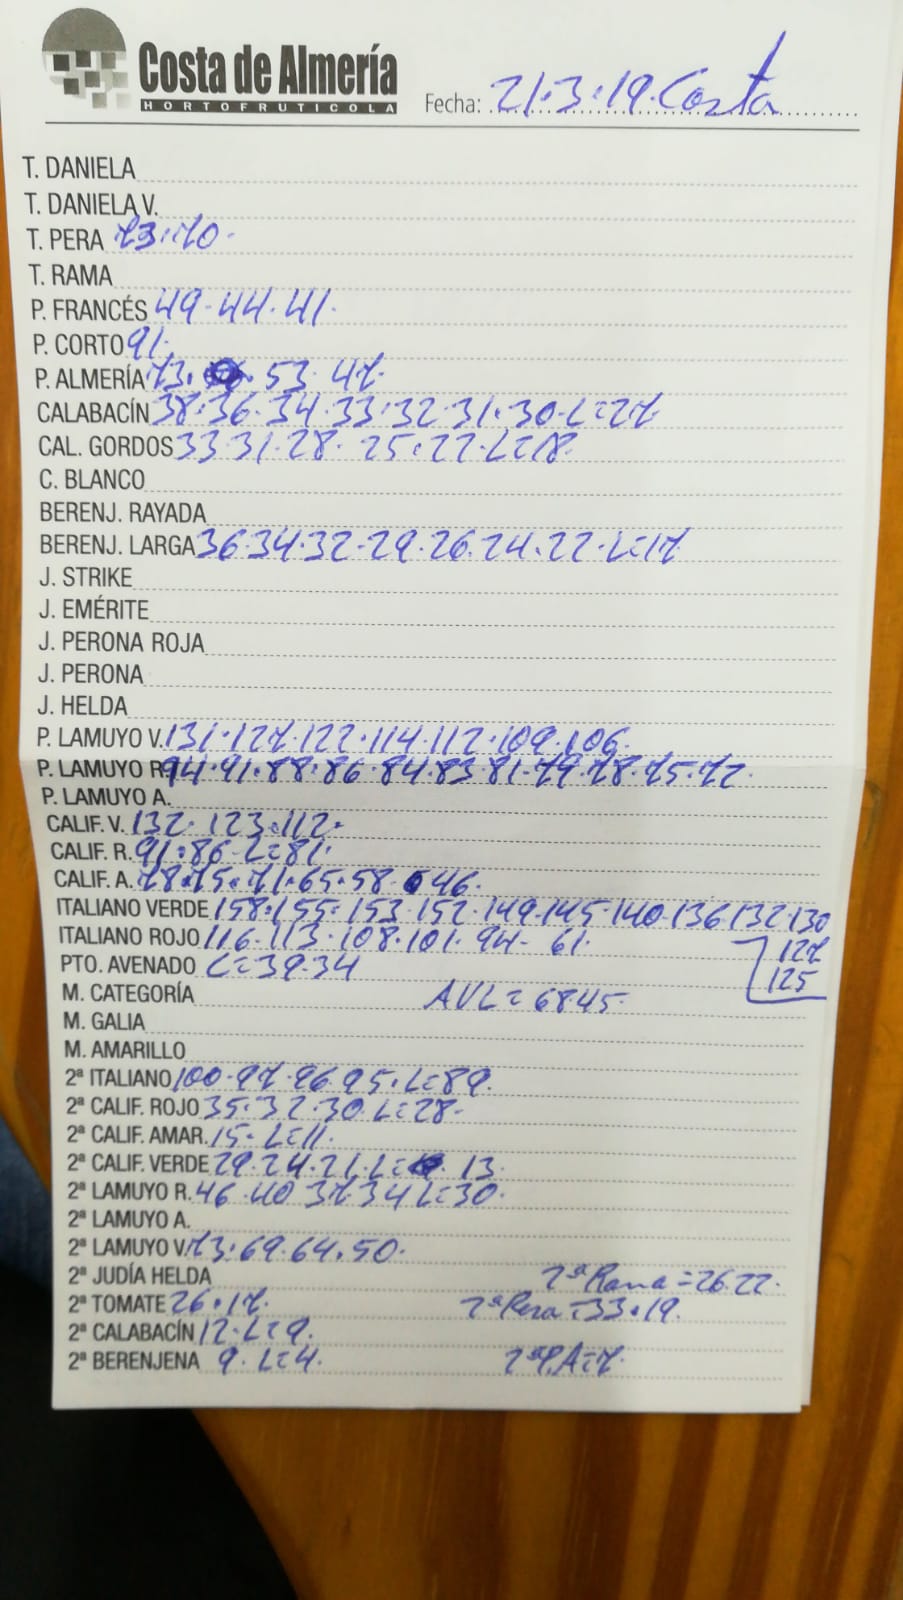 Costa de Almería
HORTOFRUTICOLA
Fecha: 21.3.19. Costa
T. DANIELA
T. DANIELA V.
T. PERA 73.70.
T. RAMA
P. FRANCÉS 49.44.41.
P. CORTO 91.
P. ALMERÍA 73. 53 47.
CALABACÍN 38.36.34.33.32.31.30-L=27
CAL. GORDOS 33 31.28. 25.22.L=18
C. BLANCO
BERENJ. RAYADA
BERENJ. LARGA 36.34.32.29.26.24.22.L=17
J. STRIKE
J. EMÉRITE
J. PERONA ROJA
J. PERONA
J. HELDA
P. LAMUYO V. 131.127.122.114.112.109.106.
P. LAMUYO R. 94.91.88.86.84.83.81.79.78.75.72
P. LAMUYO A.
CALIF. V. 132. 123.112.
CALIF. R. 91.86.L=81.
CALIF. A. 78.75.71.65.58. 46.
ITALIANO VERDE 158.155.153.152.149.145.140.136.132.130
127
125
ITALIANO ROJO 116.113.108.101.94- 61.
PTO. AVENADO L=39.34
M. CATEGORÍA AVL=6845.
M. GALIA
M. AMARILLO
2ª ITALIANO 100.97.96.95.L=89.
2ª CALIF. ROJO 35.32.30.L=28.
2ª CALIF. AMAR. 15- L=11.
2ª CALIF. VERDE 29.24.21.L= 13.
2ª LAMUYO R. 46.40 37.34 L=30.
2ª LAMUYO A.
2ª LAMUYO V. 73.69.64.50.
2ª JUDÍA HELDA 2ª Rama=26.22.
2ª TOMATE 26.17. 2ª Pera=33.19.
2ª CALABACÍN 12.L=9.
2ª BERENJENA 9.L=4. 2ª P.A=7.